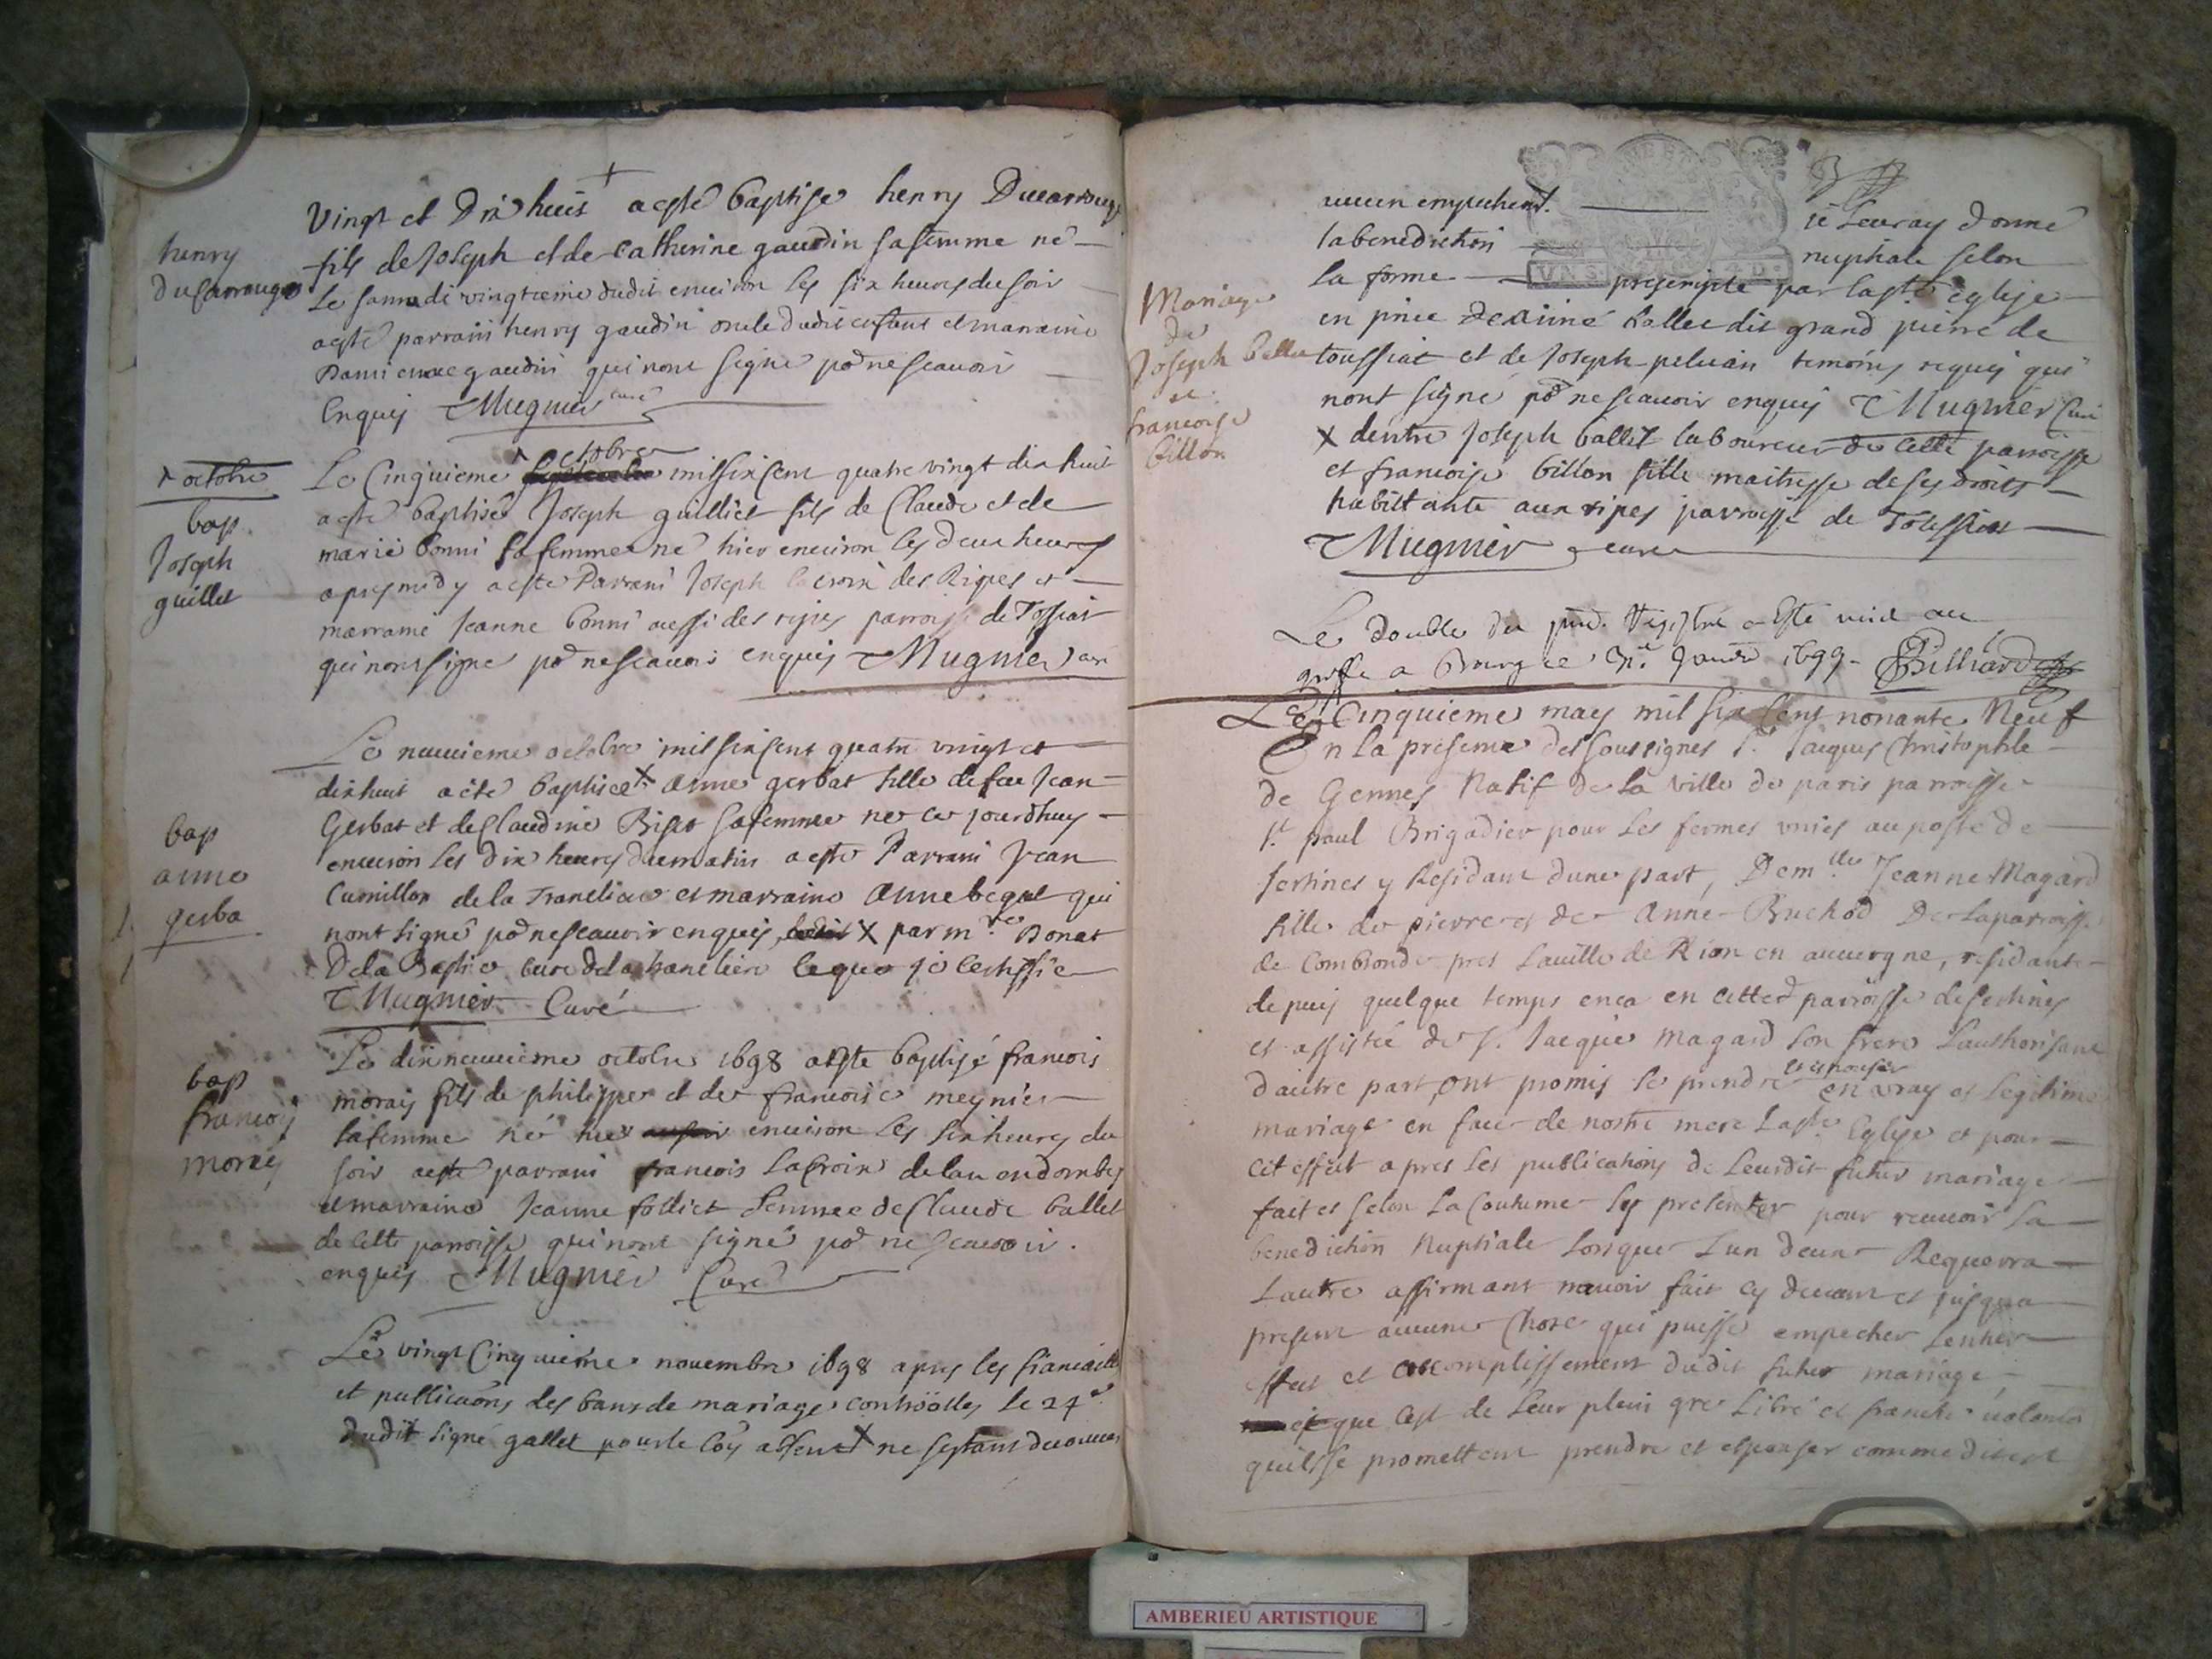 Vingt et Dix huit a esté baptisé henry Ducarrouge
fils de Joseph et de Catherine gaudin sa femme né
Le samedi vingtieme dudit environ les six heures du soir
a esté parrain henry gaudin oncle dudit enfant et marraine
gaudin qui nont signé po.r ne scavoir
Enquis Mugnier curé
henry
Ducarrouge
octobre
Le Cinquieme octobre mil six cent quatre vingt dix huit
a esté baptisé Joseph guilliet fils de Claude et de
marie bonni sa femme né hier environ les deux heures
apres midy a esté Parrain Joseph lacroix des Ripes et
marraine Jeanne bonni aussi des ripes parroisse de Tossiat
qui nont signé po.r ne scavoir enquis Mugnier curé
octobre
bap
Joseph
guillet
Le neuvieme octobre mil six cent quatre vingt et
dix huit a été baptisée X Anne gerbat fille de feu Jean
Gerbat et de Claudine sa femme née ce jourdhuy
environ les dix heures du matin a esté Parrain Jean
Cumillon de la Tranclière et marraine Anne begat qui
nont signé po.r ne scavoir enquis X par m.re Donat
De la Bastie curé de la tranclière ce que je certiffie
Mugnier Curé
bap
anne
gerba
Le dix neuvieme octobre 1698 a esté baptisé francois
morais fils de philippe et de francoise meynier
sa femme né hier environ les six heures du
soir a esté parrain francois Lacroix
et marraine Jeanne folliet femme de Claude ballet
de cette parroisse qui nont signé po.r ne scavoir
enquis Mugnier Curé
bap
francois
morais
Le vingt Cinquieme novembre 1698 apres les fiancailles
et publicaons des bans de mariage controollés le 24e
dudit signé gallet pour le absent X ne sestant decouvert
aucun empechemt. je leur ay donné
la benediction nuptiale selon
la forme prescripte par la ste église
en pnce de aimé ballet dit grand pierre de
toussiat et de Joseph peluan temoins requis qui
nont signé po.r ne scavoir enquis Mugnier Curé
X dentre Joseph ballet laboureur de cette parroisse
et francoise billon fille maitresse de ses droits
habitante aux ripes parroisse de Toussiat
Mugnier curé
Mariage
de
Joseph ballet
et
francoise
billon
Le double du pnt. Registre a Esté mis au
greffe a Bourg ce Janvr 1699. Billiard
Le Cinquieme may mil six Cent nonante Neuf
En la presence des soussignes Sr. Jacques Christophle
de Gennes Natif de la ville de paris parroisse
St. paul Brigadier pour les fermes unies au poste de
sertines y Residant dune part, Dem.lle Jeanne Magard
fille de pierre et de Anne Buchod De la parroisse
de Combronde pres la ville de Rion en auvergne, residante
depuis quelque temps en ca en cetted parroisse de sertines
et assistée de S. Jacques Magard son frere Lauthorisant
d'autre part, ont promis se prendre et espouser en vray et Legitime
mariage en face de nostre mere La ste Eglise et pour
cet effect apres les publications de Leurdit futur mariage
faites selon La Coutume sy presenter pour recevoir La
benediction Nuptiale lorsque Lun deux Requerra
Lautre affirmant navoir fait cy devant et jusqua
present aucune Chose qui puisse empecher Lentier
effect et accomplissement dudit futur mariage
et que cest de Leur plein gre Libre et franche volonté
quils se promettent prendre et espouser comme dit est
AMBERIEU ARTISTIQUE